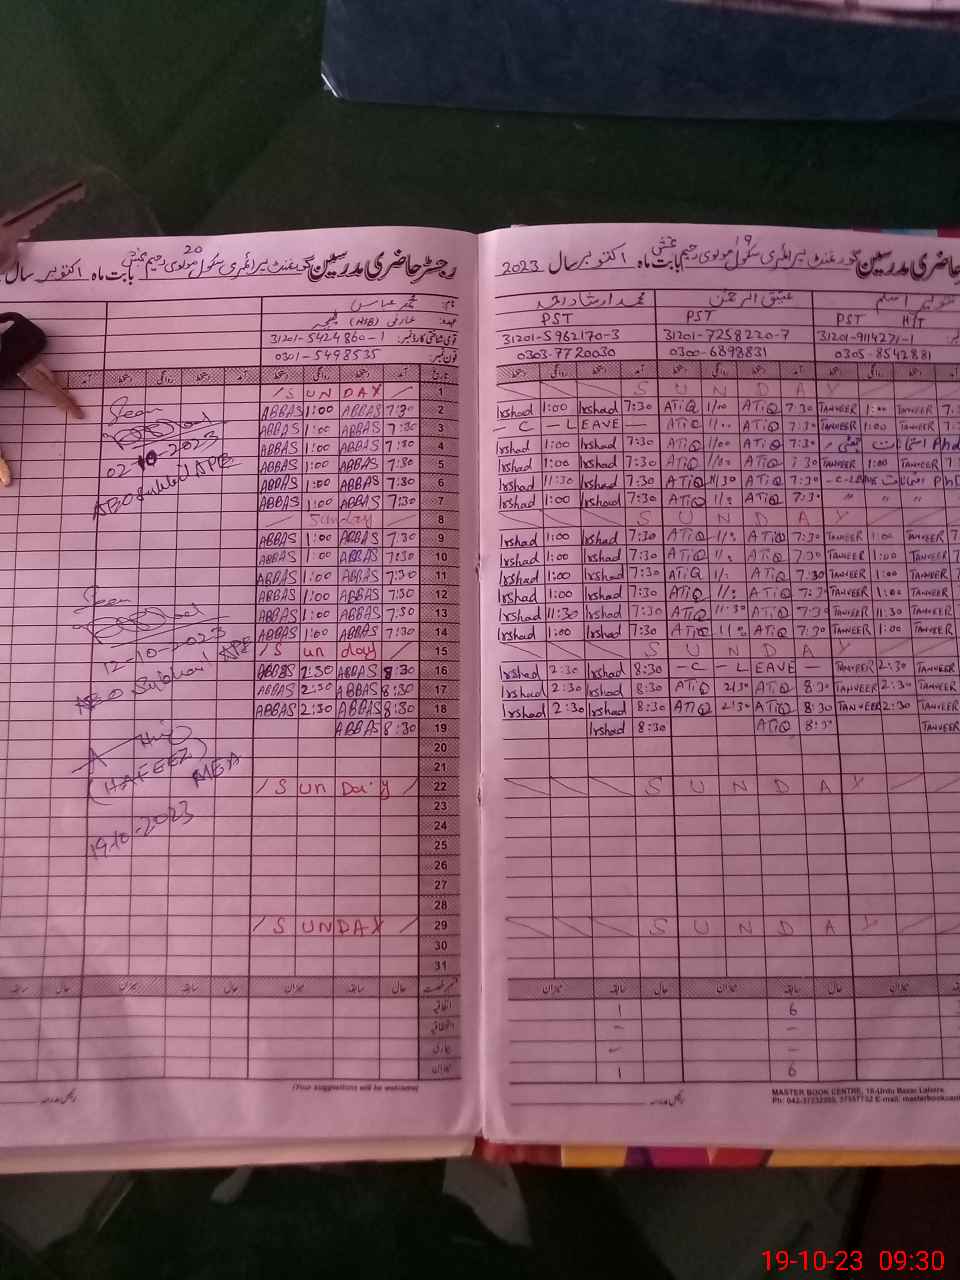 رجسٹر حاضری مدرسین گورنمنٹ پرائمری سکول مولوی رحیم بخش بابت ماہ اکتوبر سال
20
نام: محمد عباس
عہدہ: عارضی (NSB) ٹیچر
قومی شناختی کارڈ نمبر: 31201-5424860-1
فون نمبر: 0301-5498535
تاریخ آمد دستخط روانگی دستخط
1 / S UN DAY
2 7:30 ABBAS 1:00 ABBAS
3 7:30 ABBAS 1:00 ABBAS
4 7:30 ABBAS 1:00 ABBAS
5 7:30 ABBAS 1:00 ABBAS
6 7:30 ABBAS 1:00 ABBAS
7 7:30 ABBAS 1:00 ABBAS
8 — Sunday —
9 7:30 ABBAS 1:00 ABBAS
10 7:30 ABBAS 1:00 ABBAS
11 7:30 ABBAS 1:00 ABBAS
12 7:30 ABBAS 1:00 ABBAS
13 7:30 ABBAS 1:00 ABBAS
14 7:30 ABBAS 1:00 ABBAS
15 / S un day /
16 8:30 ABBAS 2:30 ABBAS
17 8:30 ABBAS 2:30 ABBAS
18 8:30 ABBAS 2:30 ABBAS
19 8:30 ABBAS
20
21
22 / S un Day /
23
24
25
26
27
28
29 / S UNDAY /
30
31
Seen
02-10-2023
Seen
12-10-2023
HAFEEZ
MEA
19-10-2023
میزان سابقہ حال
اتفاقیہ
میزان
(Your suggestions will be welcome)
حاضری مدرسین گورنمنٹ پرائمری سکول مولوی رحیم بخش بابت ماہ اکتوبر سال 2023
19
تنویر اسلم
عتیق الرحمٰن
محمد ارشاد احمد
PST H/T
PST
PST
31201-911427/-1
31201-7258220-7
31201-5962170-3
0305-8542881
0300-6898831
0303-7720030
S U N D A Y
Irshad 1:00 Irshad 7:30 ATIQ 1/00 ATIQ 7:30 TANVEER 1:00 TANVEER
— C — LEAVE — ATIQ 1/00 ATIQ 7:30 TANVEER 1:00 TANVEER
Irshad 1:00 Irshad 7:30 ATIQ 1/00 ATIQ 7:30
Irshad 1:00 Irshad 7:30 ATIQ 1/00 ATIQ 7:30 TANVEER 1:00 TANVEER
Irshad 11:30 Irshad 7:30 ATIQ 11/30 ATIQ 7:30
Irshad 1:00 Irshad 7:30 ATIQ ATIQ 7:30 " " "
S U N D A Y
Irshad 1:00 Irshad 7:30 ATIQ ATIQ 7:30 TANVEER 1:00 TANVEER
Irshad 1:00 Irshad 7:30 ATIQ ATIQ 7:30 TANVEER 1:00 TANVEER
Irshad 1:00 Irshad 7:30 ATIQ ATIQ 7:30 TANVEER 1:00 TANVEER
Irshad 1:00 Irshad 7:30 ATIQ ATIQ 7:30 TANVEER 1:00 TANVEER
Irshad 11:30 Irshad 7:30 ATIQ 11:30 ATIQ 7:30 TANVEER 11:30 TANVEER
Irshad 1:00 Irshad 7:30 ATIQ ATIQ 7:30 TANVEER 1:00 TANVEER
S U N D A Y
Irshad 2:30 Irshad 8:30 — C — LEAVE — TANVEER 2:30 TANVEER
Irshad 2:30 Irshad 8:30 ATIQ 2:30 ATIQ 8:30 TANVEER 2:30 TANVEER
Irshad 2:30 Irshad 8:30 ATIQ 2:30 ATIQ 8:30 TANVEER 2:30 TANVEER
Irshad 8:30 ATIQ 8:30 TANVEER
S U N D A Y
S U N D A Y
میزان سابقہ حال میزان سابقہ حال میزان
1 6
– –
– –
1 6
MASTER BOOK CENTRE, 16-Urdu Bazar Lahore.
19-10-23 09:30